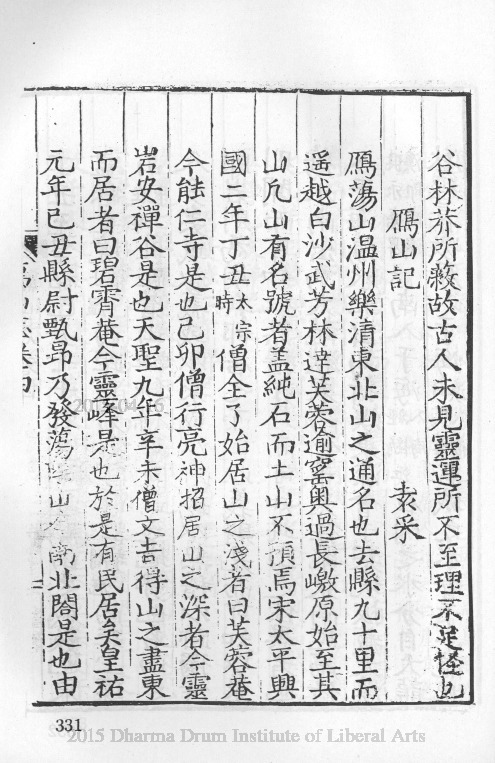 谷林莽所蔽故古人未見靈運所不至理不足怪也
鴈山記
袁采
鴈蕩山温州樂清東北山之通名也去縣九十里而
遥越白沙武芳林達芙蓉逾窰奧過長嶔原始至其
山凢山有名號者盖純石而土山不預焉宋太平興
國二年丁丑太宗時僧全了始居山之淺者曰芙蓉菴
今能仁寺是也己卯僧行亮神招居山之深者今靈
岩安禪谷是也天聖九年辛未僧文吉得山之盡東
而居者曰碧霄菴今靈峰是也於是有民居矣皇祐
元年己丑縣尉甄昂乃發蕩山南北閤是也由
331
2015 Dharma Drum Institute of Liberal Arts